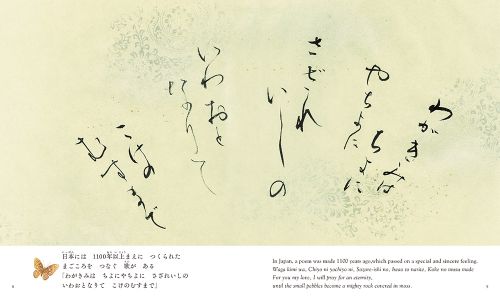 わがきみは
ちよに
やちよに
さゞれ
いしの
いわおと
なりて
こけの
むすまで
日本には 1100年以上まえに つくられた
まごころを つなぐ 歌が ある
「わがきみは ちよにやちよに さざれいしの
いわおとなりて こけのむすまで」
In Japan, a poem was made 1100 years ago,which passed on a special and sincere feeling.
Waga kimi wa, Chiyo ni yachiyo ni, Sazare-ishi no, Iwao to narite, Koke no musu made
For you my love, I will pray for an eternity,
until the small pebbles become a mighty rock covered in moss.